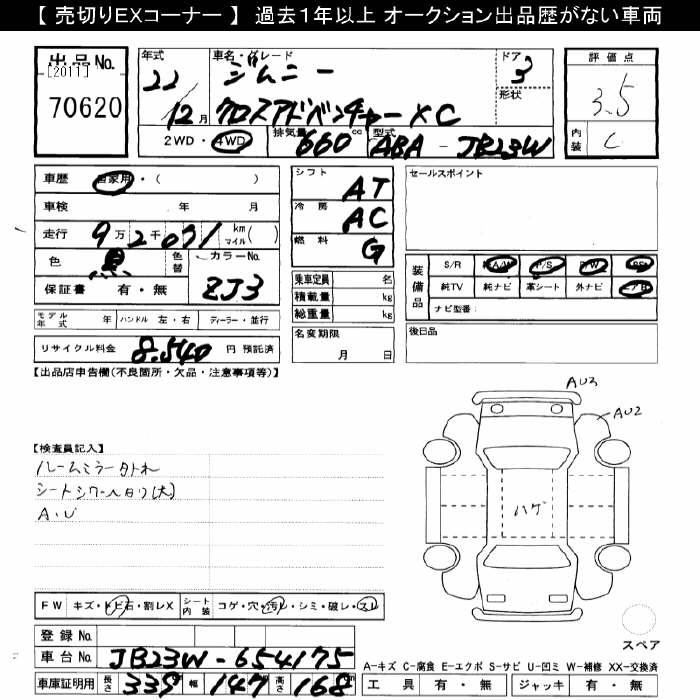 【 売切りEXコーナー 】 過去1年以上 オークション出品歴がない車両
出品No.
[2011]
70620
年式
22
12月
車名・グレード
ジムニー
クロスアドベンチャーXC
ドア
3
形状
2WD・4WD
排気量 660 cc
型式 ABA-JB23W
評価点
3.5
内装 C
車歴 自家用・( )
車検 年 月
走行 9万2千071 km マイル( )
色 黒 色替
カラーNo.
ZJ3
保証書 有・無
モデル年式 年 ハンドル 左・右 ディーラー・並行
リサイクル料金 8.540 円 預託済
シフト AT
冷房 AC
燃料 G
乗車定員 名
積載量 kg
総重量 kg
名変期限
月 日
セールスポイント
装備品
S/R 純A/W P/S P/W ABS
純TV 純ナビ 革シート 外ナビ エアB
ナビ型番:
後日品
【出品店申告欄(不良箇所・欠品・注意事項等)】
【検査員記入】
ルームミラー外れ
A.U
AU3
AU2
ハゲ
FW キズ・トビ石・割レX
シート内装 コゲ・穴・汚レ・シミ・破レ・スレ
登録No.
車台No. JB23W-654175
車庫証明用 長さ 339 幅 147 高さ 168 cm
スペア
A-キズ C-腐食 E-エクボ S-サビ U-凹ミ W-補修 XX-交換済
工具 有・無 ジャッキ 有・無